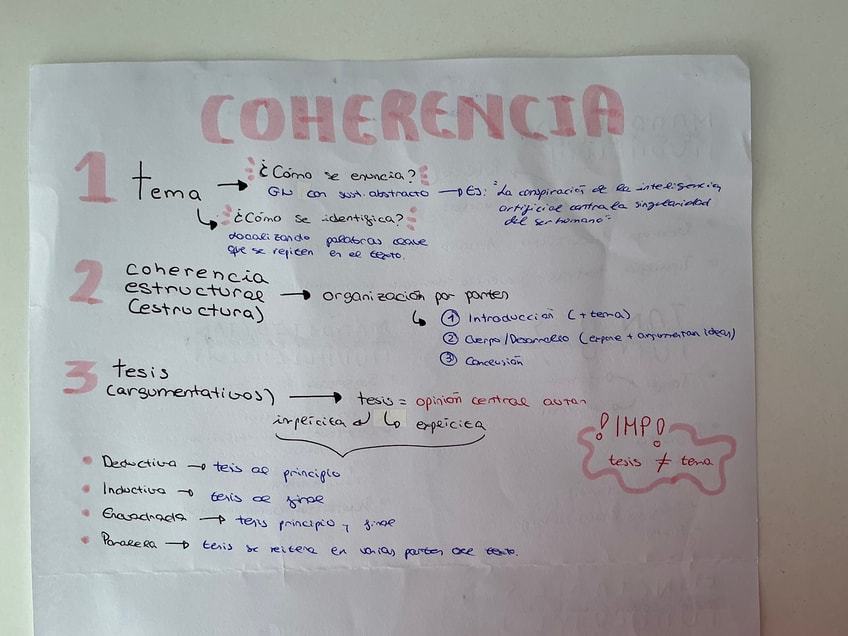 COHERENCIA
1 tema → ¿Cómo se enuncia?
GN con sust. abstracto → Ej: "La conspiración de la inteligencia
artificial contra la singularidad
del ser humano"
¿Cómo se identifica?
Localizando palabras clave
que se repiten en el texto.
2 coherencia
estructural → organización por partes
(estructura)
① Introducción (+ tema)
② Cuerpo/Desarrollo (expone + argumentan ideas)
③ Conclusión
3 tesis
(argumentativos) → tesis = opinión central autor
implícita explícita
¡IMP!
tesis ≠ tema
• Deductiva → tesis al principio
• Inductiva → tesis al final
• Encuadrada → tesis principio y final
• Paralela → tesis se reitera en varias partes del texto.